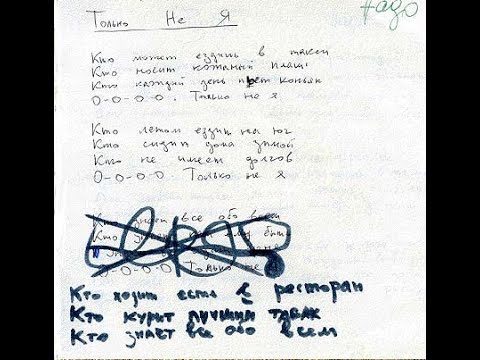 надо
Только Не Я
Кто может ездить в такси
Кто носит кожаный плащ
Кто каждый день пьёт коньяк
О-о-о-о. Только не я
Кто летом ездит на юг
Кто сидит дома зимой
Кто не имеет долгов
О-о-о-о. Только не я
Кто знает все обо всем
Кто быть
О-о-о-о Только не я
Кто ходит есть в ресторан
Кто курит лучший табак
Кто знает все обо всем